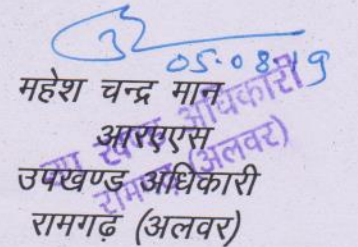 05.08.19
महेश चन्द्र मान
आरएएस
उपखण्ड अधिकारी
रामगढ़ (अलवर)
उप खण्ड अधिकारी
रामगढ़ (अलवर)